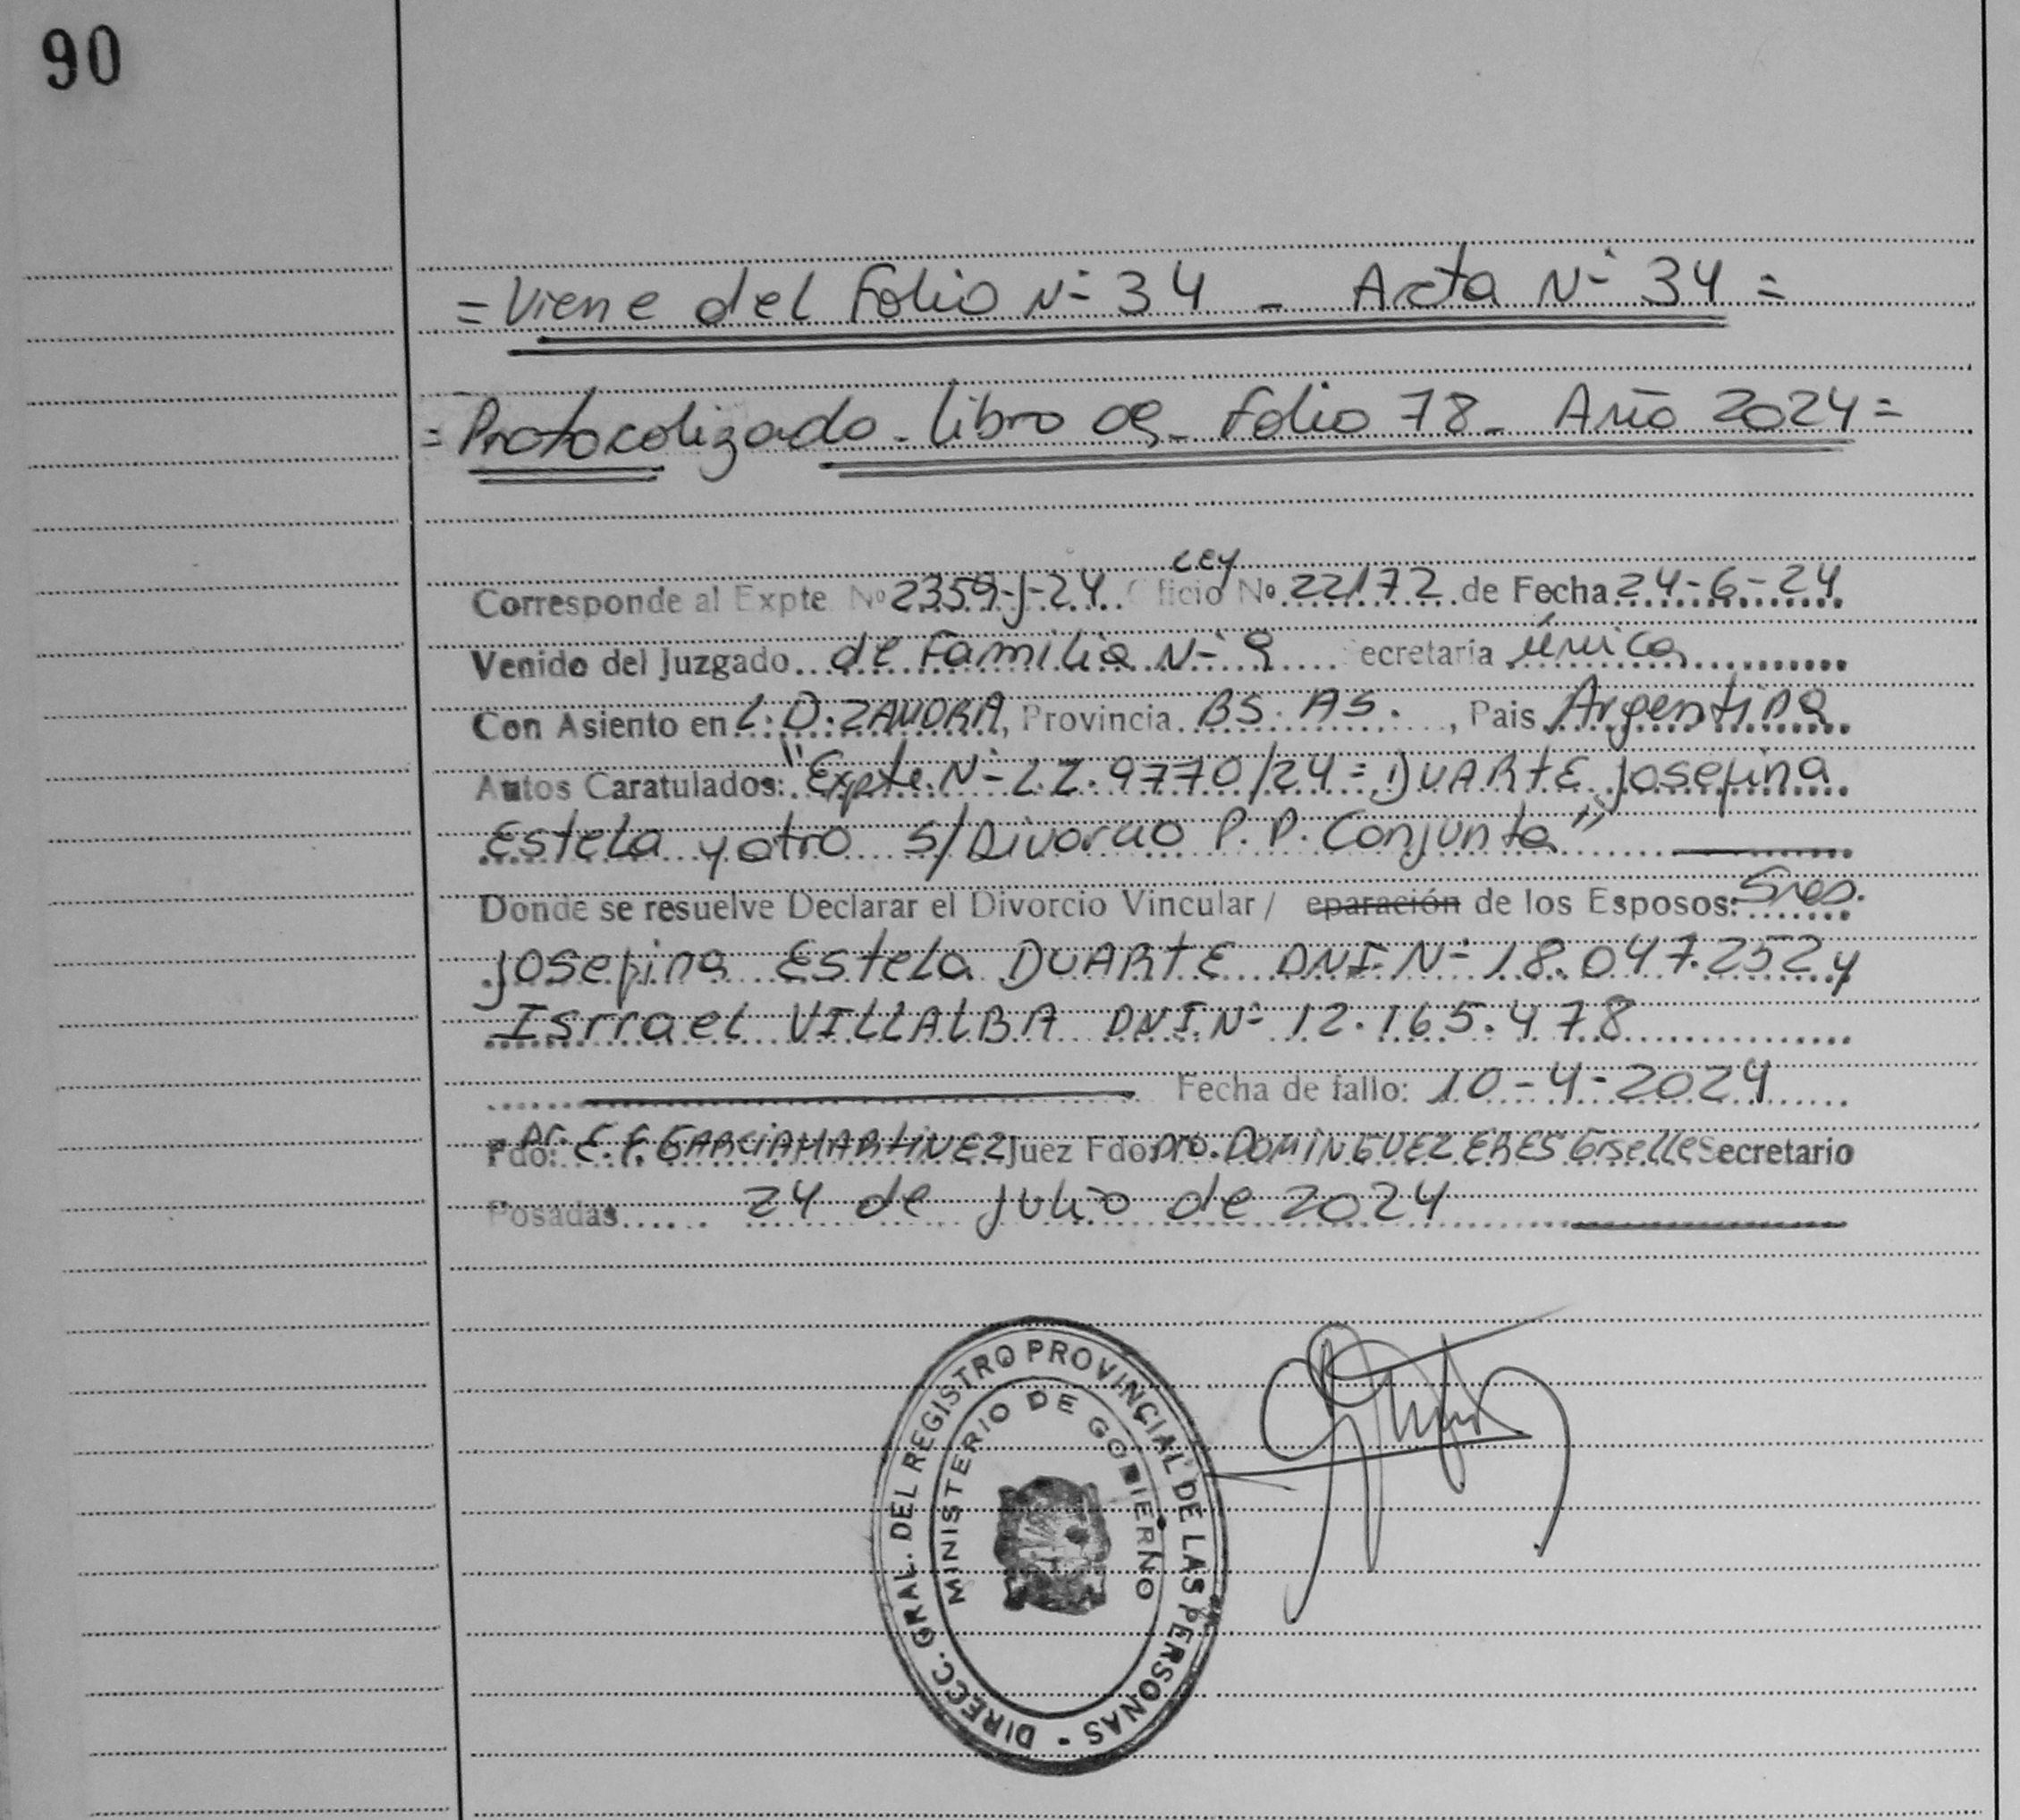 90
= Viene del Folio Nº 34 - Acta Nº 34 =
= Protocolizado - libro 09 - Folio 78 - Año 2024 =
Ley
Corresponde al Expte Nº 2359-J-24. Oficio Nº 22172 de Fecha 24-6-24
Venido del Juzgado de Familia Nº 9 Secretaria única
Con Asiento en L.D.ZAMORA, Provincia BS. AS. , Pais Argentina
Autos Caratulados: "Expte. Nº LZ.9770/24 = DUARTE Josefina
Estela y otro s/Divorcio P.P. Conjunta"
Donde se resuelve Declarar el Divorcio Vincular / eparación de los Esposos: Sres.
Josefina Estela DUARTE DNI Nº 18.047.252 y
Isrrael VILLALBA DNI Nº 12.165.478
Fecha de fallo: 10-4-2024
Fdo: Dr. E. F. GARCIA MARTINEZ Juez Fdo Dra. DOMINGUEZ ERES Giselle Secretario
Posadas 24 de julio de 2024
DIRECC. GRAL. DEL REGISTRO PROVINCIAL DE LAS PERSONAS -
MINISTERIO DE GOBIERNO